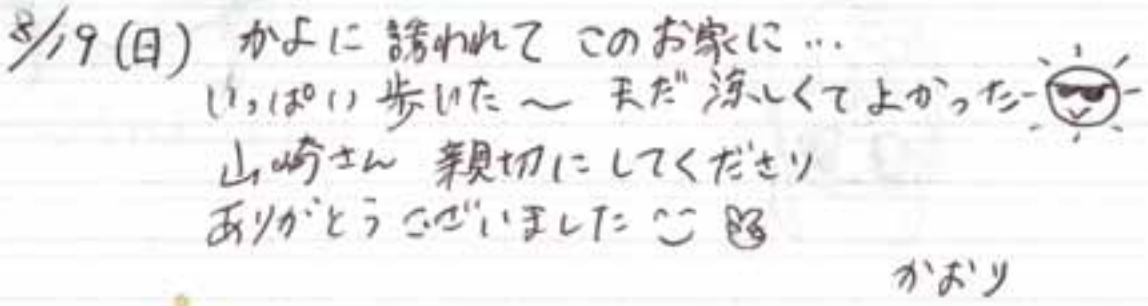 8/19(日) かよに 誘われて このお家に…
いっぱい 歩いた〜 まだ 涼しくて よかった
山崎さん 親切に してくださり
ありがとう ございました
かおり